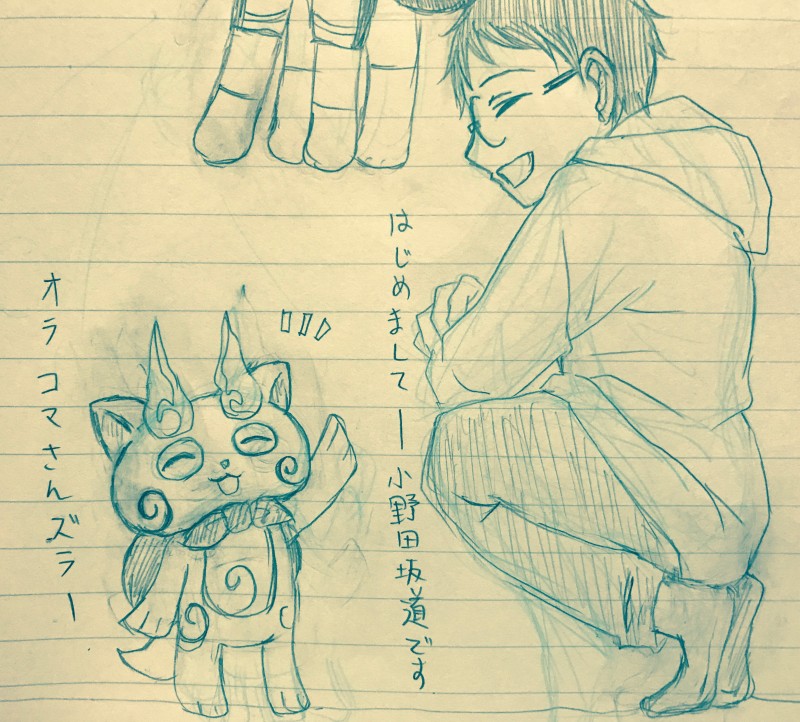 はじめましてー小野田坂道です
オラコマさんズラー